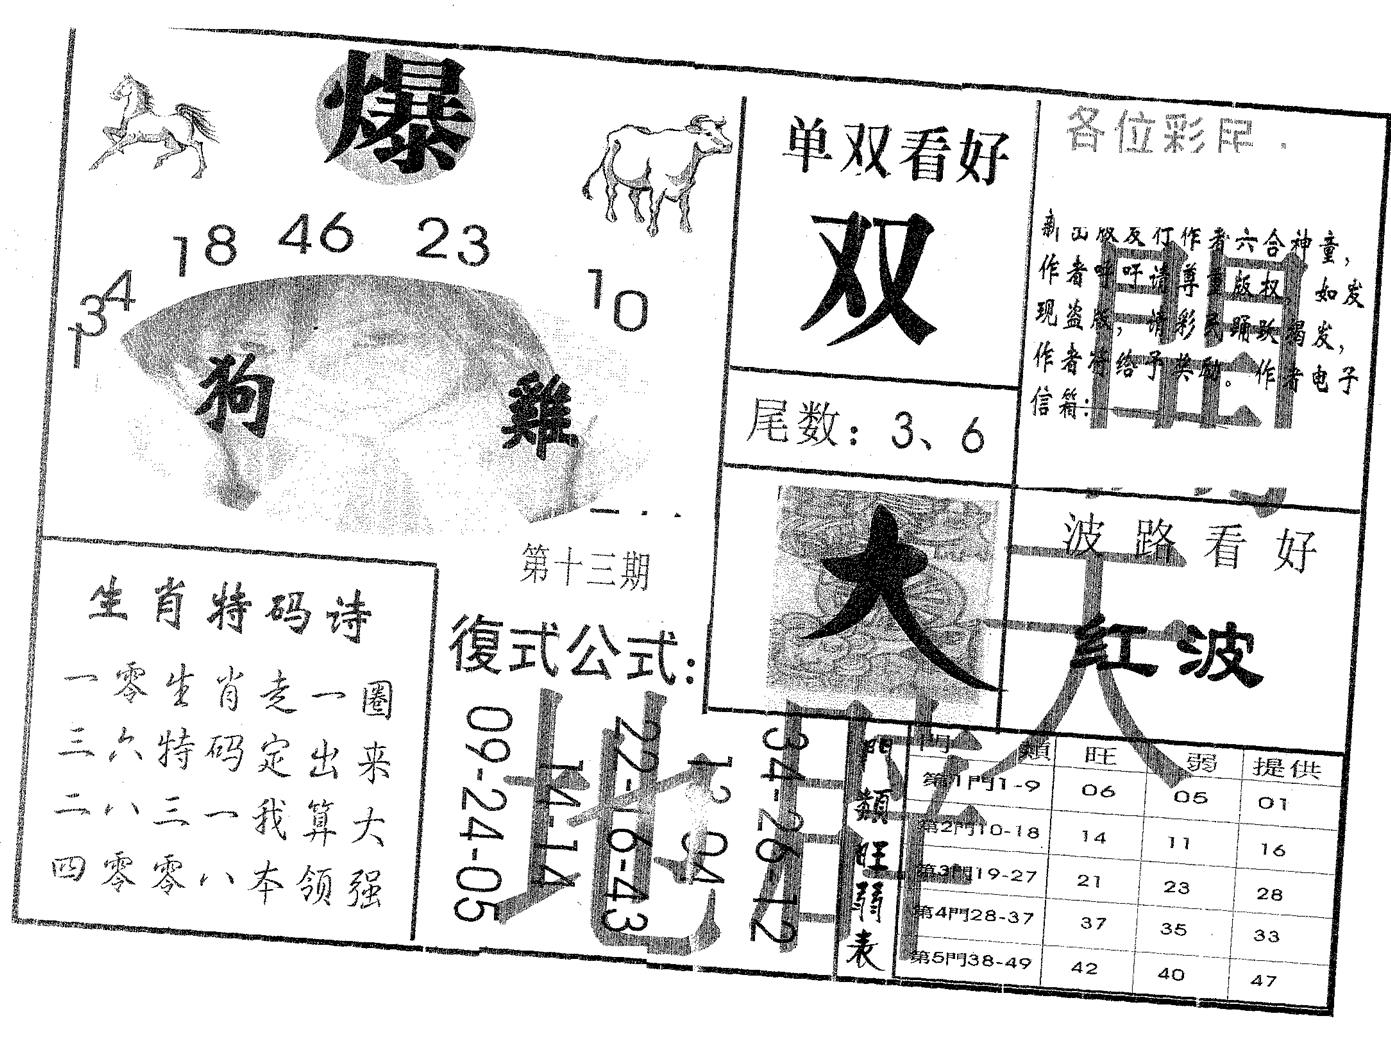 爆
18 46 23
34
10
1
狗
雞
单双看好
双
尾数：3、6
大
各位彩民
新出版发行作者六合神童，
作者呼吁请尊重版权，如发
现盗版，请彩民踊跃揭发，
作者将给予奖励。作者电子
信箱：
波路看好
紅波
第十三期
復式公式:
09-24-05
14-14
22-16-43
12 04
34-26-12
生肖特码诗
一零生肖走一圈
三六特码定出来
二八三一我算大
四零零八本领强
門類旺弱表
門類 旺 弱 提供
第1門1-9 06 05 01
第2門10-18 14 11 16
第3門19-27 21 23 28
第4門28-37 37 35 33
第5門38-49 42 40 47